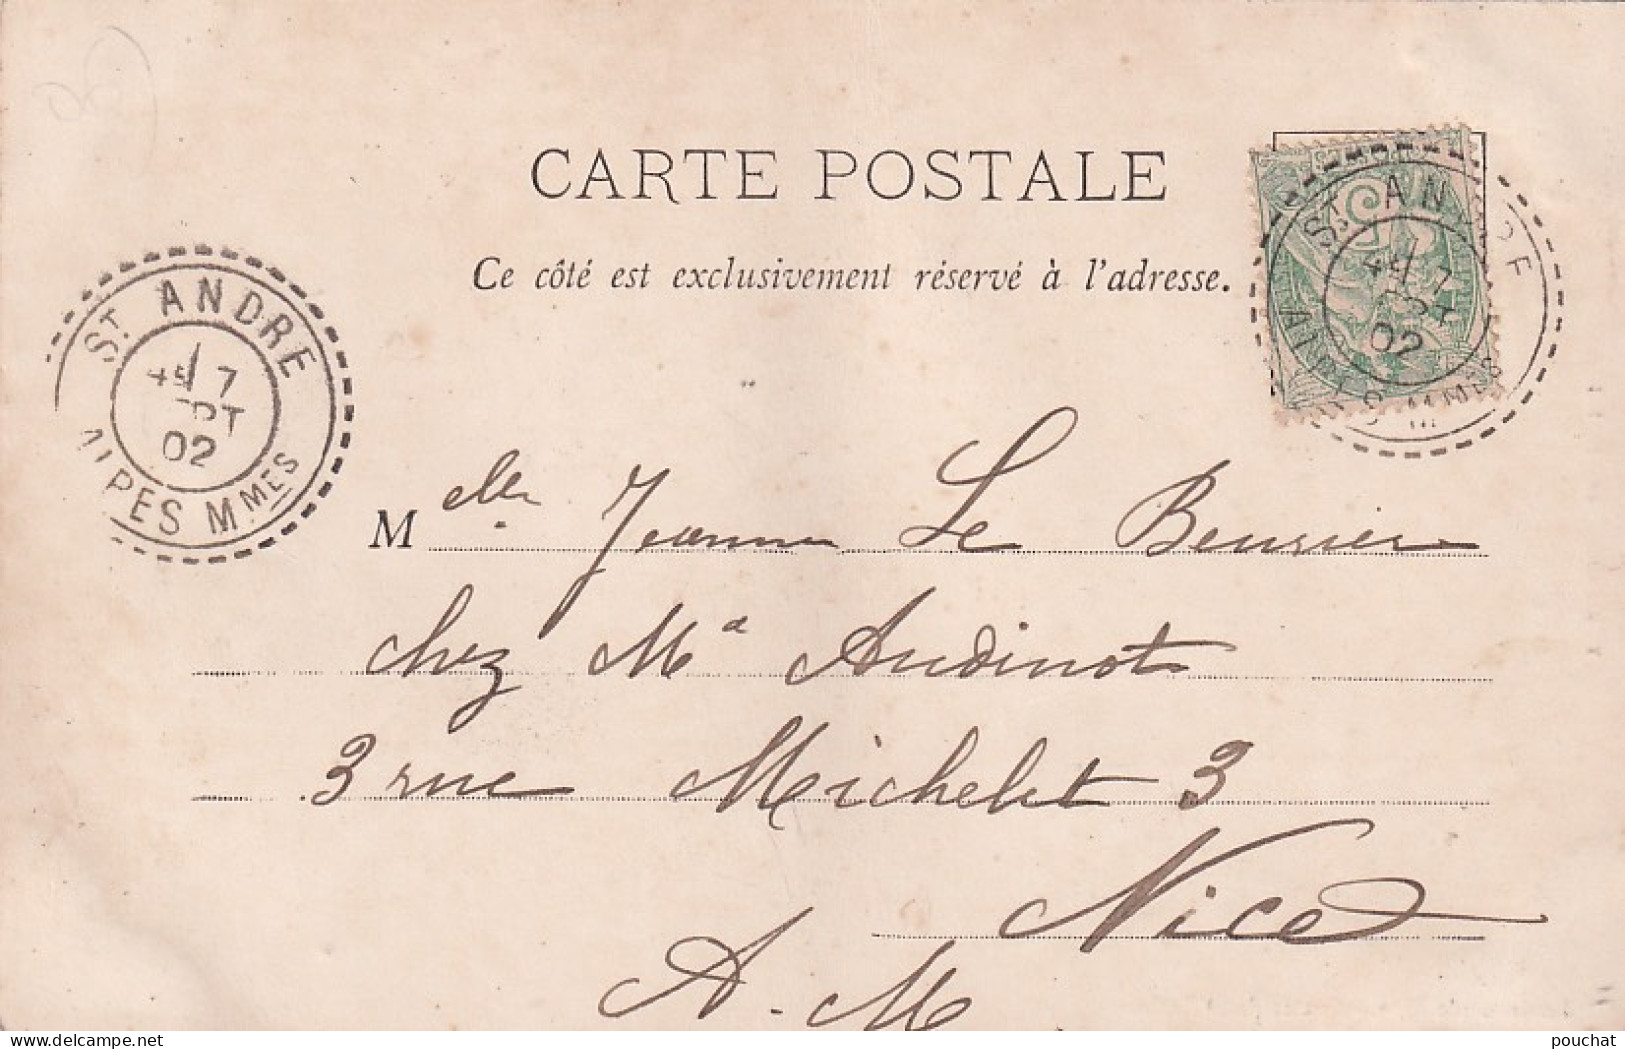 CARTE POSTALE
Ce côté est exclusivement réservé à l'adresse.
ST ANDRÉ
7
02
ALPES MMES
ST ANDRE
7
02
ALPES MMES
Melle Jeanne Le Beurier
chez Md Audinot
3 rue Michelet 3
Nice
A. M
delcampe.net
pouchat